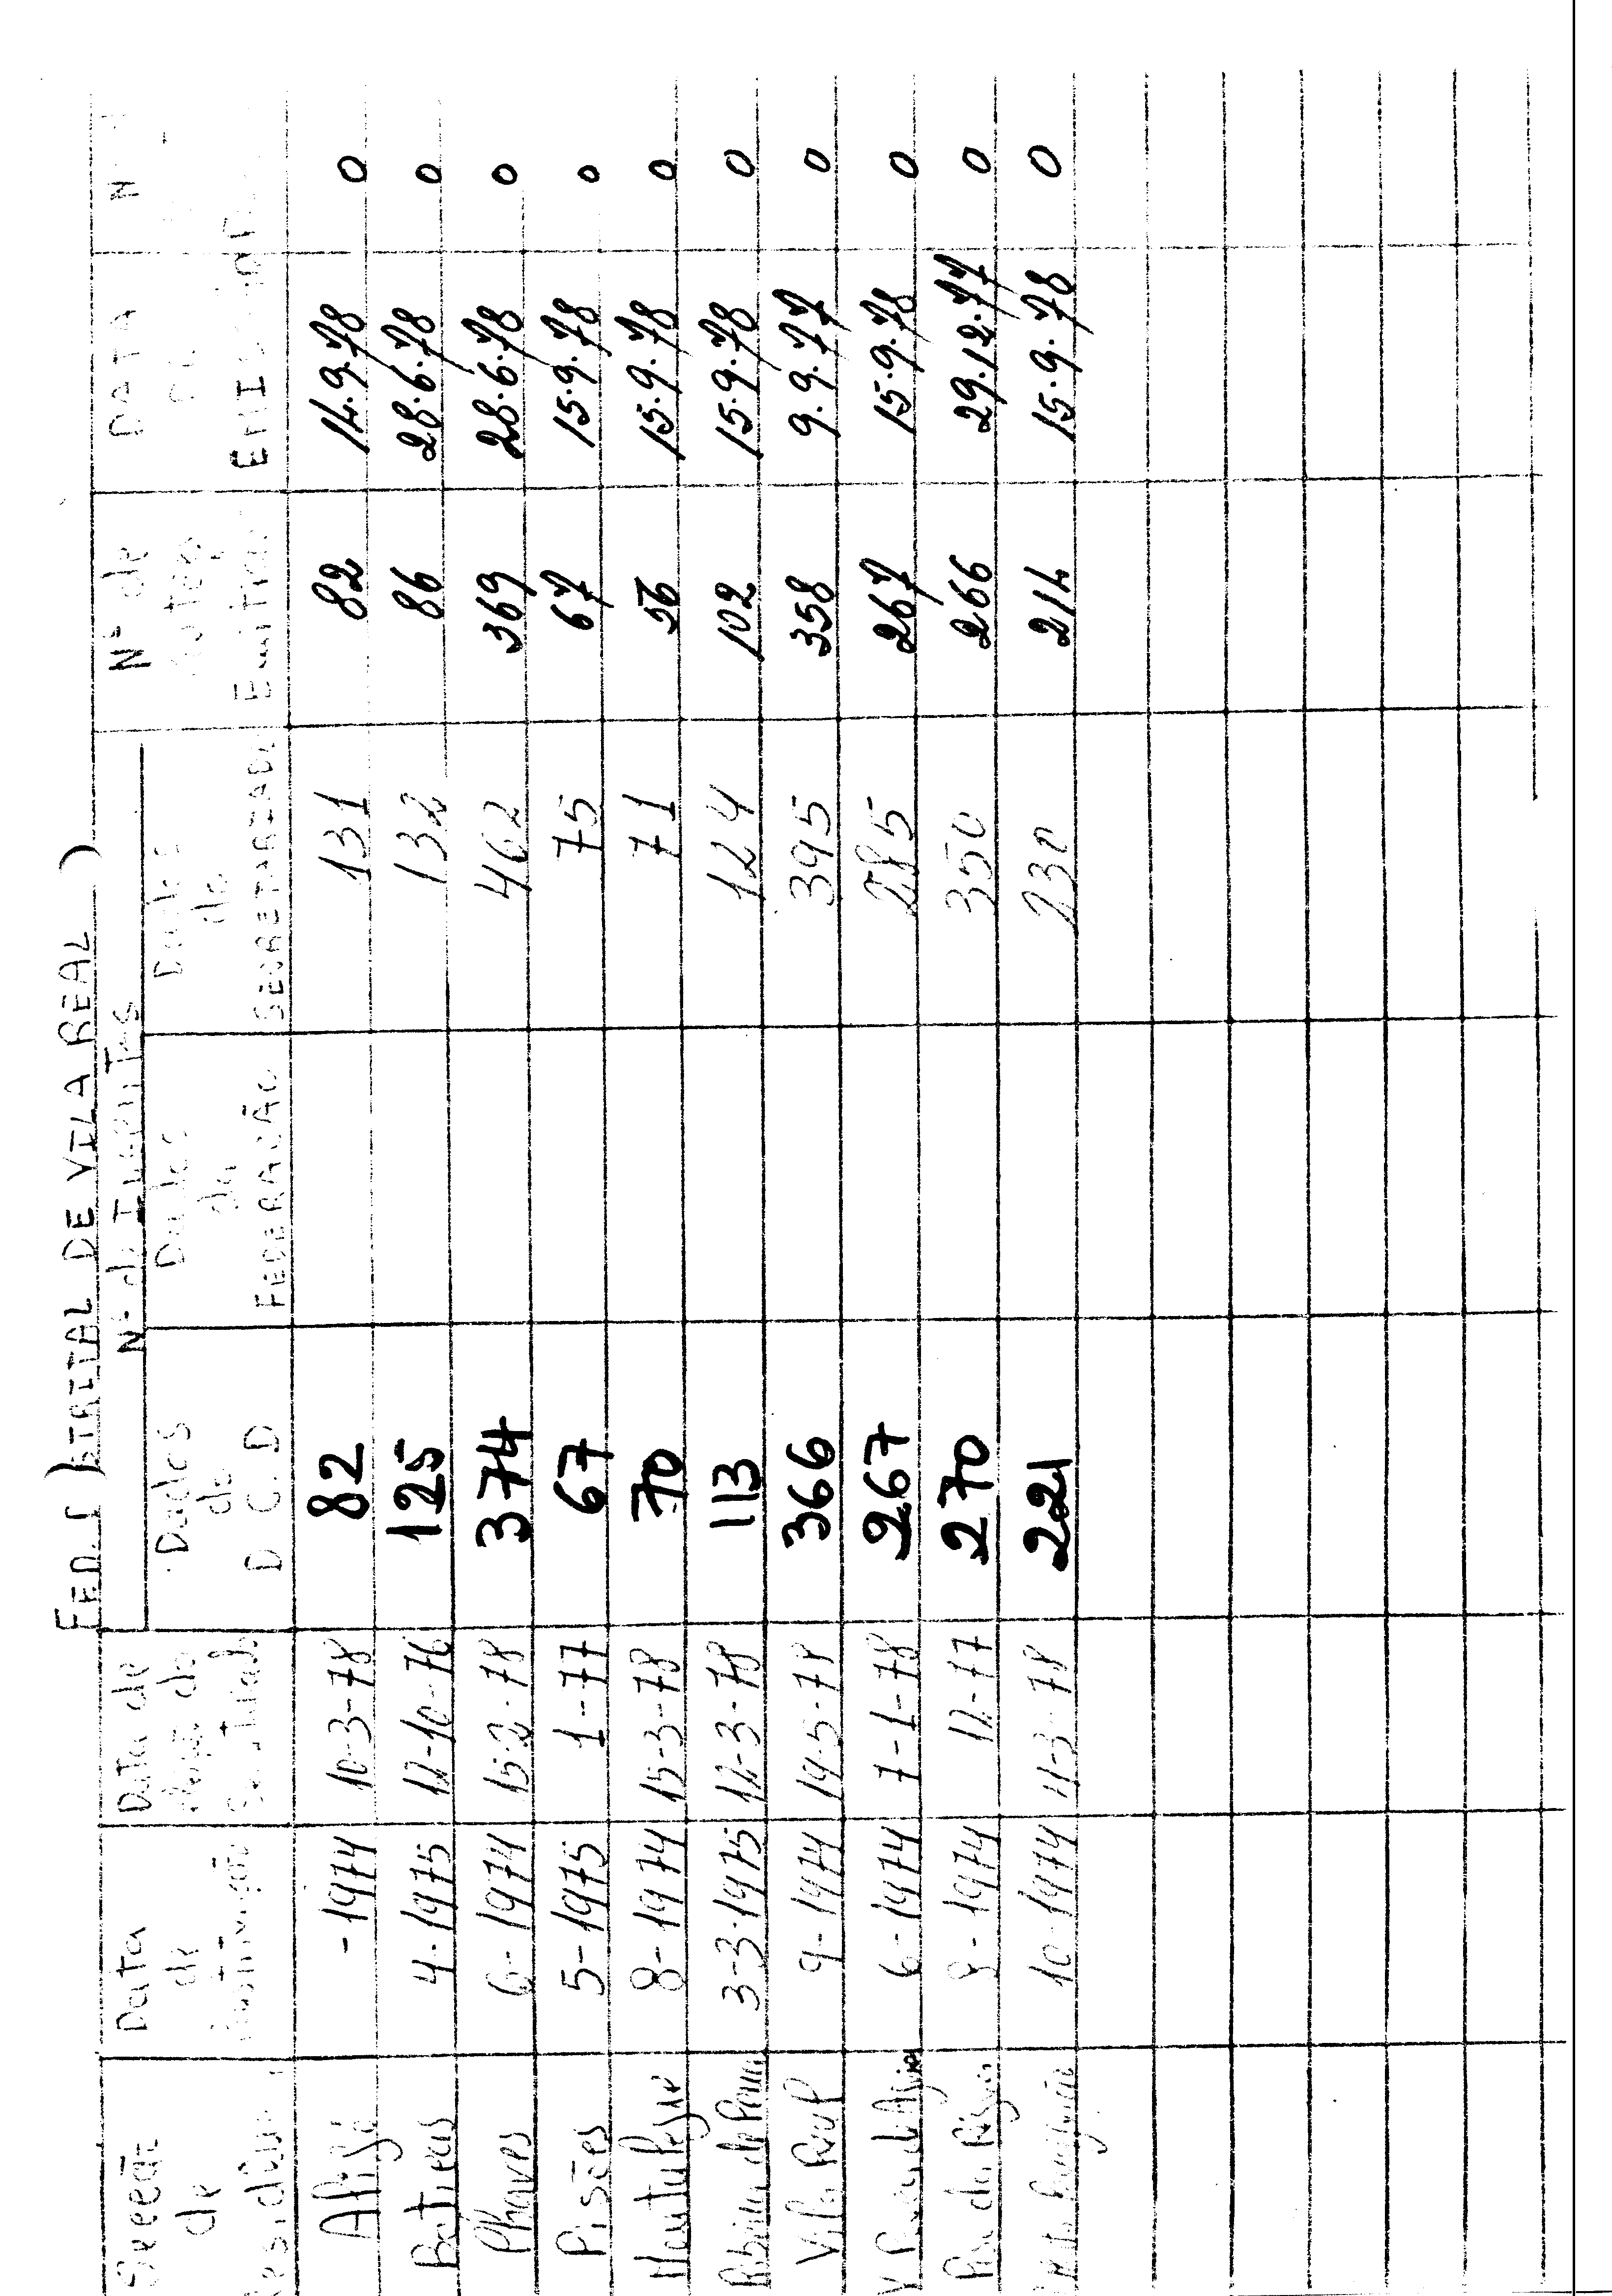 FED. DISTRITAL DE VILA REAL )
Secção de Data de Data de Nº de Inscritos Nº de DATA Nº
Dados da D C D Dados da FEDERAÇÃO Dados da Emitidos
Alijó - 1974 10-3-78 82 131 82 14.9.78 0
Boticas 4-1975 12-10-76 125 132 86 28.6.78 0
Chaves 6-1974 15-2-78 374 462 369 28.6.78 0
Pisões 5-1975 1-77 67 75 67 15.9.78 0
Montalegre 8-1974 15-3-78 70 71 56 15.9.78 0
Ribeira de Pena 3-3-1975 12-3-78 113 124 102 15.9.78 0
Vila Real 9-1974 14-5-78 366 395 358 9.9.77 0
V Pouca de Aguiar 6-1974 7-1-78 267 285 267 15.9.78 0
Peso da Régua 8-1974 12-77 270 350 266 29.12.77 0
10-1974 11-3-78 221 230 214 15.9.78 0